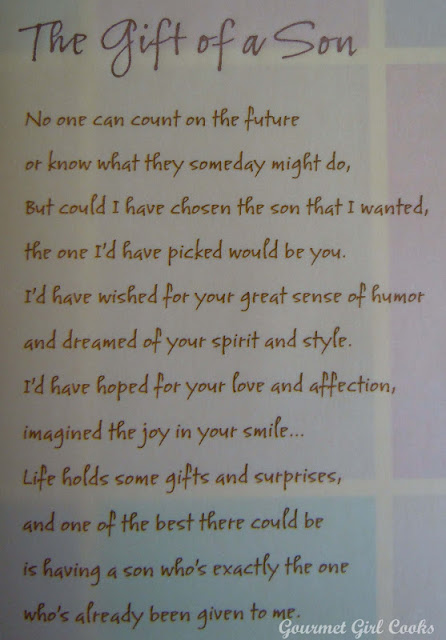 The Gift of a Son
No one can count on the future
or know what they someday might do,
But could I have chosen the son that I wanted,
the one I'd have picked would be you.
I'd have wished for your great sense of humor
and dreamed of your spirit and style.
I'd have hoped for your love and affection,
imagined the joy in your smile...
Life holds some gifts and surprises,
and one of the best there could be
is having a son who's exactly the one
who's already been given to me.
Gourmet Girl Cooks